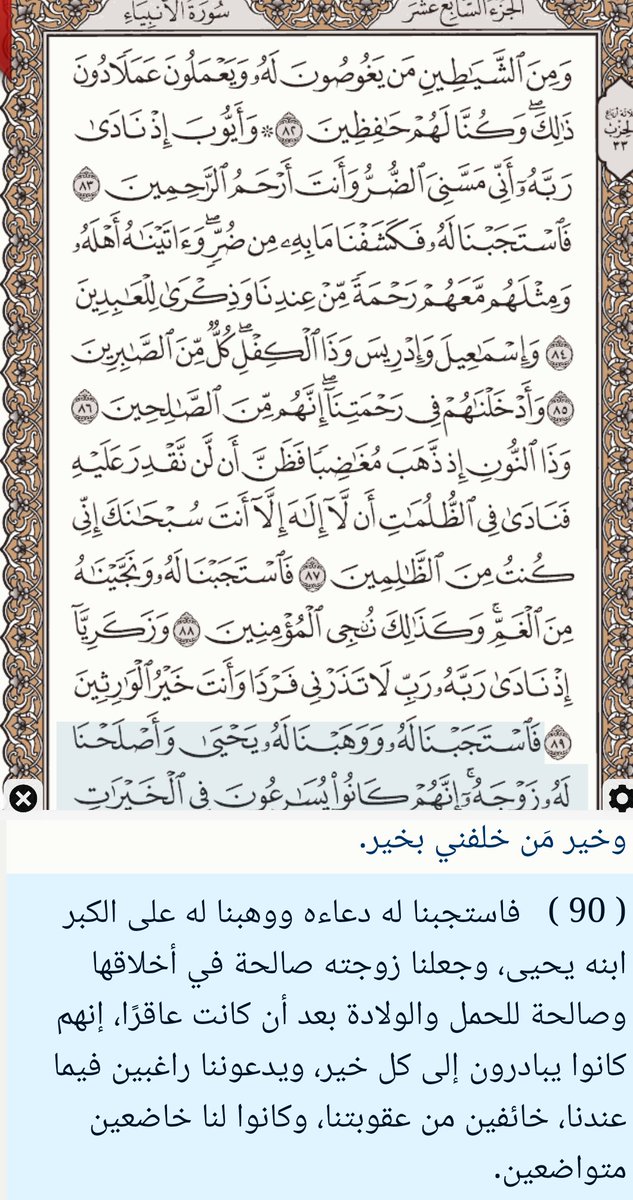 الجزء السابع عشر
سورة الأنبياء
ثلاثة أرباع
الحزب
٣٣
وَمِنَ ٱلشَّيَٰطِينِ مَن يَغُوصُونَ لَهُۥ وَيَعۡمَلُونَ عَمَلٗا دُونَ
ذَٰلِكَۖ وَكُنَّا لَهُمۡ حَٰفِظِينَ ٨٢ ۞ وَأَيُّوبَ إِذۡ نَادَىٰ
رَبَّهُۥٓ أَنِّي مَسَّنِيَ ٱلضُّرُّ وَأَنتَ أَرۡحَمُ ٱلرَّٰحِمِينَ ٨٣
فَٱسۡتَجَبۡنَا لَهُۥ فَكَشَفۡنَا مَا بِهِۦ مِن ضُرّٖۖ وَءَاتَيۡنَٰهُ أَهۡلَهُۥ
وَمِثۡلَهُم مَّعَهُمۡ رَحۡمَةٗ مِّنۡ عِندِنَا وَذِكۡرَىٰ لِلۡعَٰبِدِينَ
٨٤ وَإِسۡمَٰعِيلَ وَإِدۡرِيسَ وَذَا ٱلۡكِفۡلِۖ كُلّٞ مِّنَ ٱلصَّٰبِرِينَ
٨٥ وَأَدۡخَلۡنَٰهُمۡ فِي رَحۡمَتِنَآۖ إِنَّهُم مِّنَ ٱلصَّٰلِحِينَ ٨٦
وَذَا ٱلنُّونِ إِذ ذَّهَبَ مُغَٰضِبٗا فَظَنَّ أَن لَّن نَّقۡدِرَ عَلَيۡهِ
فَنَادَىٰ فِي ٱلظُّلُمَٰتِ أَن لَّآ إِلَٰهَ إِلَّآ أَنتَ سُبۡحَٰنَكَ إِنِّي
كُنتُ مِنَ ٱلظَّٰلِمِينَ ٨٧ فَٱسۡتَجَبۡنَا لَهُۥ وَنَجَّيۡنَٰهُ
مِنَ ٱلۡغَمِّۚ وَكَذَٰلِكَ نُـۨجِي ٱلۡمُؤۡمِنِينَ ٨٨ وَزَكَرِيَّآ
إِذۡ نَادَىٰ رَبَّهُۥ رَبِّ لَا تَذَرۡنِي فَرۡدٗا وَأَنتَ خَيۡرُ ٱلۡوَٰرِثِينَ
٨٩ فَٱسۡتَجَبۡنَا لَهُۥ وَوَهَبۡنَا لَهُۥ يَحۡيَىٰ وَأَصۡلَحۡنَا
لَهُۥ زَوۡجَهُۥٓۚ إِنَّهُمۡ كَانُواْ يُسَٰرِعُونَ فِي ٱلۡخَيۡرَٰتِ
وخير مَن خلفني بخير.
( 90 ) فاستجبنا له دعاءه ووهبنا له على الكبر
ابنه يحيى، وجعلنا زوجته صالحة في أخلاقها
وصالحة للحمل والولادة بعد أن كانت عاقرًا، إنهم
كانوا يبادرون إلى كل خير، ويدعوننا راغبين فيما
عندنا، خائفين من عقوبتنا، وكانوا لنا خاضعين
متواضعين.